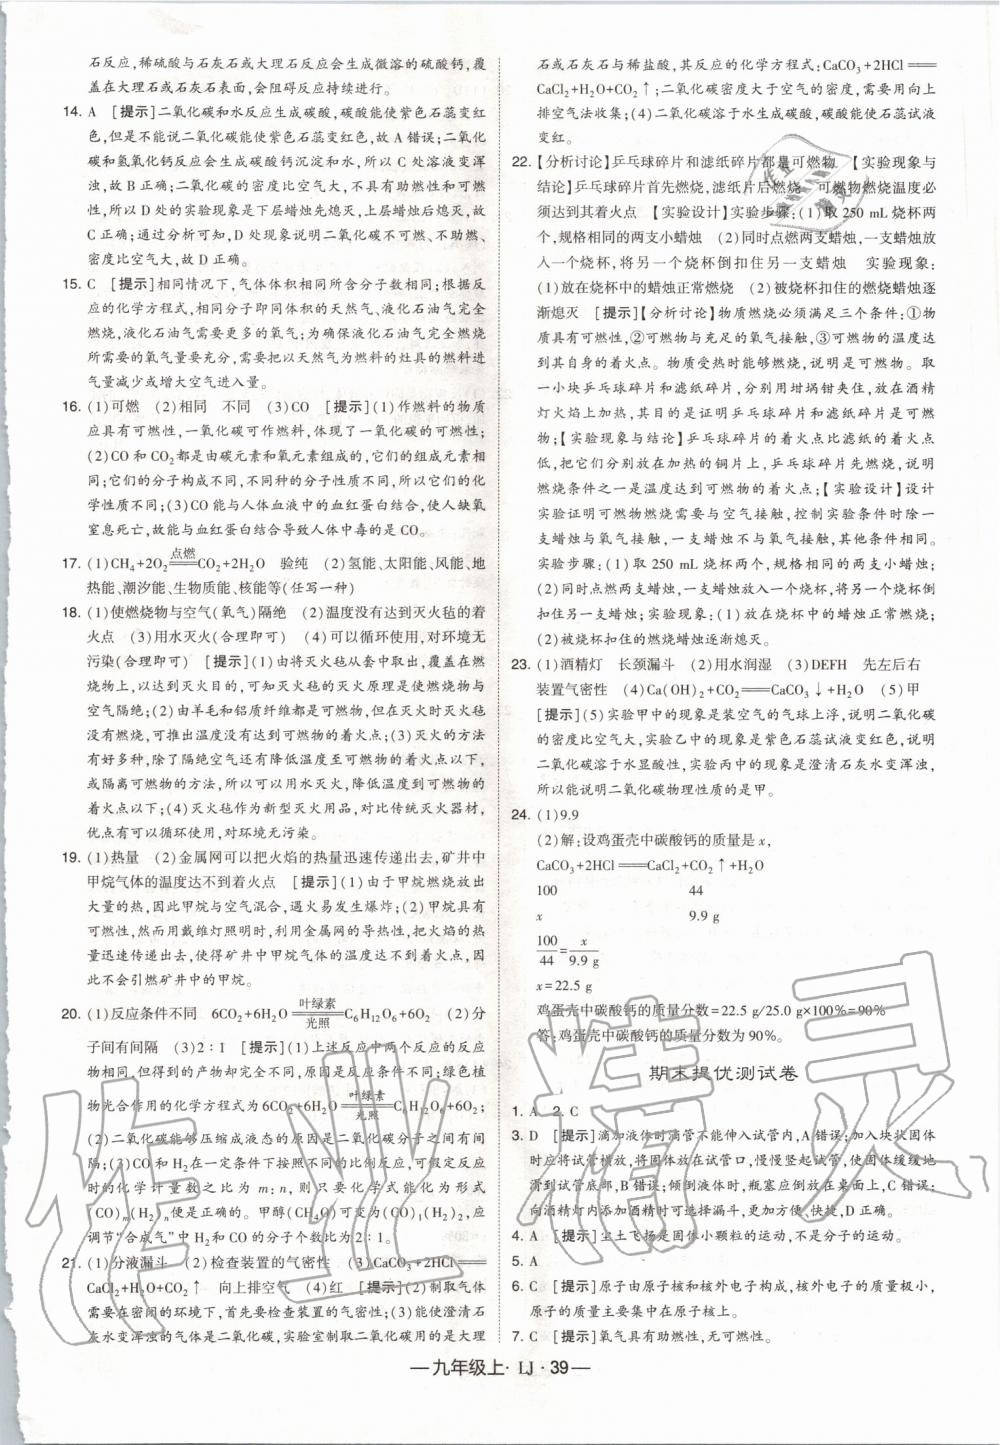 石反应，稀硫酸与石灰石或大理石反应会生成微溶的硫酸钙，覆
盖在大理石或石灰石表面，会阻碍反应持续进行。
14. A [提示]二氧化碳和水反应生成碳酸，碳酸能使紫色石蕊变
红色，但是不能说二氧化碳能使紫色石蕊变红色，故 A 错误；二氧化
碳和氢氧化钙反应生成碳酸钙沉淀和水，所以 C 处溶液变浑
浊，故 B 正确；二氧化碳的密度比空气大，不具有助燃性和可燃
性，所以 D 处的实验现象是下层蜡烛先熄灭，上层蜡烛后熄灭，
故 C 正确；通过分析可知，D 处现象说明二氧化碳不可燃、不助燃、
密度比空气大，故 D 正确。
15. C [提示]相同情况下，气体体积相同所含分子数相同；根据反
应的化学方程式，相同分子即同体积的天然气、液化石油气完全
燃烧，液化石油气需要更多的氧气；为确保液化石油气完全燃烧
所需要的氧气量要充分，需要把以天然气为燃料的灶具的燃料进
气量减少或增大空气进入量。
16. (1)可燃 (2)相同 不同 (3)CO [提示](1)作燃料的物质
应具有可燃性，一氧化碳可作燃料，体现了一氧化碳的可燃性；
(2)CO 和 CO₂都是由碳元素和氧元素组成的，它们的组成元素相
同；它们的分子构成不同，不同种的分子性质不同，所以它们的化
学性质不同；(3)CO 能与人体血液中的血红蛋白结合，使人缺氧
窒息死亡，故能与血红蛋白结合导致人体中毒的是 CO。
17. (1)CH₄+2O₂ 点燃══ CO₂+2H₂O 验纯 (2)氢能、太阳能、风能、地
热能、潮汐能、生物质能、核能等(任写一种)
18. (1)使燃烧物与空气(氧气)隔绝 (2)温度没有达到灭火毯的着
火点 (3)用水灭火(合理即可) (4)可以循环使用，对环境无
污染(合理即可) [提示](1)由将灭火毯从套中取出，覆盖在燃
烧物上，达到灭火目的，可知灭火毯的灭火原理是使燃烧物与
空气隔绝；(2)由羊毛和铝质纤维都是可燃物，但在灭火时灭火毯
没有燃烧，可推出温度没有达到灭火毯的着火点；(3)灭火的方法
有好多种，除了隔绝空气还有降低温度至可燃物的着火点以下，
或隔离可燃物的方法，所以可以用水灭火，降低温度到可燃物的
着火点以下；(4)灭火毯作为新型灭火用品，对比传统灭火器材，
优点有可以循环使用，对环境无污染。
19. (1)热量 (2)金属网可以把火焰的热量迅速传递出去，矿井中
甲烷气体的温度达不到着火点 [提示](1)由于甲烷燃烧放出
大量的热，因此甲烷与空气混合，遇火易发生爆炸；(2)甲烷具有
可燃性，所以用戴维灯照明时，利用金属网的导热性，把热量迅
速传递出去，使得矿井中甲烷气体的温度达不到着火点，因
此不会引燃矿井中的甲烷。
20. (1)反应条件不同 6CO₂+6H₂O 叶绿素══光照 C₆H₁₂O₆+6O₂ (2)分
子间有间隔 (3)2∶1 [提示](1)上述反应中两个反应的反应
物相同，但得到的产物却完全不同，原因是反应条件不同；绿色植
物光合作用的化学方程式为6CO₂+6H₂O 叶绿素══光照 C₆H₁₂O₆+6O₂；
(2)二氧化碳能够压缩成液态的原因是二氧化碳分子之间有间
隔；(3)CO 和 H₂在一定条件下按照不同的比例反应，可根据反应
的化学计量数之比为 m∶n，则只要化学式能化为形式
(CO)ₘ(H₂)ₙ便是符合的产物。甲醇(CH₄O)可变为(CO)₁(H₂)₂，应
调节“合成气”中 H₂与 CO 的分子个数比为 2∶1。
21. (1)分液漏斗 (2)检查装置的气密性 (3)CaCO₃+2HCl══
CaCl₂+H₂O+CO₂↑ 向上排空气 (4)红 [提示](2)制取气体
需要在密闭的环境下，首先要检查装置的气密性；(3)能使澄清石
灰水变浑浊的气体是二氧化碳，实验室制取二氧化碳用的是大理
石或石灰石与稀盐酸，其反应的化学方程式：CaCO₃+2HCl══
CaCl₂+H₂O+CO₂↑；二氧化碳密度大于空气的密度，需要用向上
排空气法收集；(4)二氧化碳溶于水生成碳酸，碳酸能使石蕊试液
变红。
22. 【分析讨论】乒乓球碎片和滤纸碎片都是可燃物 【实验现象与
结论】乒乓球碎片首先燃烧，滤纸片后燃烧 可燃物燃烧温度必
须达到其着火点 【实验设计】实验步骤：(1)取 250 mL 烧杯两
个，规格相同的两支小蜡烛 (2)同时点燃两支蜡烛，一支蜡烛放
入一个烧杯，将另一个烧杯倒扣住另一支蜡烛 实验现象：
(1)放在烧杯中的蜡烛正常燃烧 (2)被烧杯扣住的蜡烛逐
渐熄灭 [提示]【分析讨论】物质燃烧必须满足三个条件：①物质
具有可燃性，②可燃物与充足的氧气接触，③可燃物的温度达
到其自身的着火点。物质受热时能够燃烧，说明是可燃物。取
一小块乒乓球碎片和滤纸碎片，分别用坩埚钳夹住，放在酒精
灯火焰上加热，其目的是证明乒乓球碎片和滤纸碎片是可燃
物；【实验现象与结论】乒乓球碎片的着火点比滤纸的着火点
低，把它们分别放在加热的铜片上，乒乓球碎片先燃烧，说明
燃烧条件之一是温度达到可燃物的着火点；【实验设计】设计
实验证明可燃物燃烧需要与空气接触，控制实验条件时除一
支蜡烛与空气接触，另一支不与空气接触外，其他条件相同。
实验步骤：(1)取 250 mL 烧杯两个，规格相同的两支小蜡烛；
(2)同时点燃两支蜡烛，一支蜡烛放入一个烧杯，将另一个烧杯倒
扣住另一支蜡烛；实验现象：(1)放在烧杯中的蜡烛正常燃烧；
(2)被烧杯扣住的燃烧蜡烛逐渐熄灭。
23. (1)酒精灯 长颈漏斗 (2)用水润湿 (3)DEFH 先左后右
装置气密性 (4)Ca(OH)₂+CO₂══CaCO₃↓+H₂O (5)甲
[提示](5)实验甲中的现象是装空气的气球上浮，说明二氧化碳
的密度比空气大，实验乙中的现象是紫色石蕊试液变红色，说明
二氧化碳溶于水显酸性，实验丙中的现象是澄清石灰水变浑浊，
所以能说明二氧化碳物理性质的是甲。
24. (1)9.9
(2)解：设鸡蛋壳中碳酸钙的质量是 x，
CaCO₃+2HCl══CaCl₂+CO₂↑+H₂O
100 44
x 9.9 g
100/44=x/9.9 g
x=22.5 g
鸡蛋壳中碳酸钙的质量分数=22.5 g/25.0 g×100%=90%
答：鸡蛋壳中碳酸钙的质量分数为 90%。
期末提优测试卷
1. A 2. C
3. D [提示]滴加液体时滴管不能伸入试管内，A 错误；加入块状固体
时应将试管横放，将固体放在试管口，慢慢竖起试管，使固体缓缓地
滑到试管底部，B 错误；倾倒液体时，瓶塞应倒放在桌面上，C 错误；
向酒精灯内添加酒精时可选择漏斗，更加方便、快捷，D 正确。
4. A [提示]尘土飞扬是小颗粒的运动，不是分子的运动。
5. A
6. C [提示]原子由原子核和核外电子构成，核外电子的质量极小，
原子的质量主要集中在原子核上。
7. C [提示]氧气具有助燃性，无可燃性。
—九年级上·LJ·39—
作业精灵